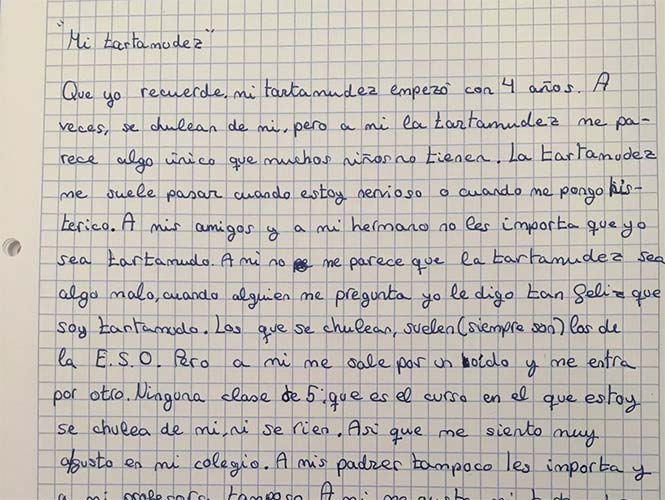 "Mi tartamudez"
Que yo recuerde, mi tartamudez empezó con 4 años. A
veces, se chulean de mi, pero a mi la tartamudez me pa-
rece algo único que muchos niños no tienen. La tartamudez
me suele pasar cuando estoy nervioso o cuando me pongo his-
terico. A mis amigos y a mi hermano no les importa que yo
sea tartamudo. A mi no me parece que la tartamudez sea
algo malo, cuando alguien me pregunta yo le digo tan feliz que
soy tartamudo. Los que se chulean, suelen (siempre son) los de
la E.S.O. Pero a mi me sale por un oido y me entra
por otro. Ninguna clase de 5: que es el curso en el que estoy
se chulea de mi, ni se rien. Asi que me siento muy
agusto en mi colegio. A mis padres tampoco les importa y
a mi profesora tampoco. A mi me gusta mi